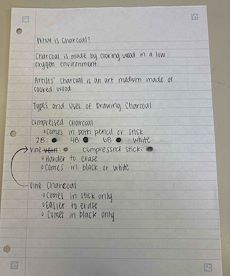 What is Charcoal?
Charcoal is made by cooking wood in a low
oxygen environment.
Artists' charcoal is an art medium made of
cooked wood
Types and Uses of Drawing Charcoal
Compressed Charcoal
Comes in both pencil or stick
2B 4B 6B white
Vine compressed stick
Harder to erase
Comes in black or white
Vine Charcoal
Comes in stick only
Easier to erase
Comes in black only